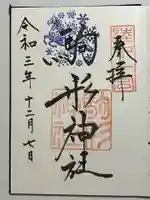 奉拝
駒形神社
令和三年十二月七日